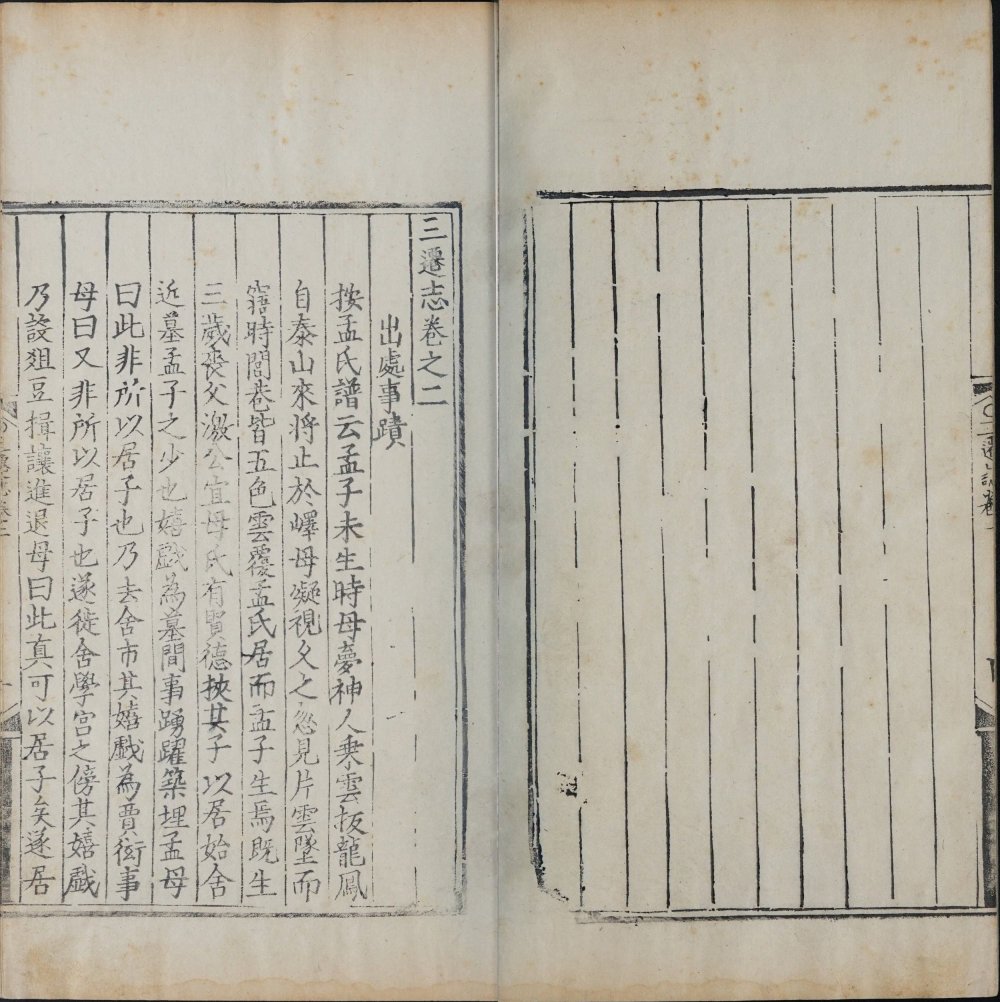 三遷志卷之二
出處事蹟
按孟氏譜云孟子未生時母夢神人乗雲扳龍鳳
自泰山來將止於嶧母凝視久之忽見片雲墜而
寤時閭巷皆五色雲覆孟氏居而孟子生焉既生
三歲喪父激公宜母氏有賢德挾其子以居始舍
近墓孟子之少也嬉戲為墓間事踴躍築埋孟母
曰此非所以居子也乃去舍市其嬉戲為賈衒事
母曰又非所以居子也遂徙舍學宫之傍其嬉戲
乃設爼豆揖讓進退母曰此真可以居子矣遂居